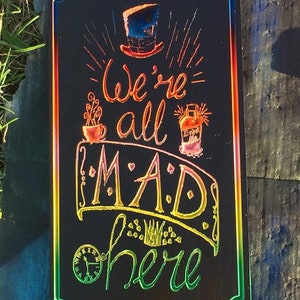 We're
all
M.A.D
here